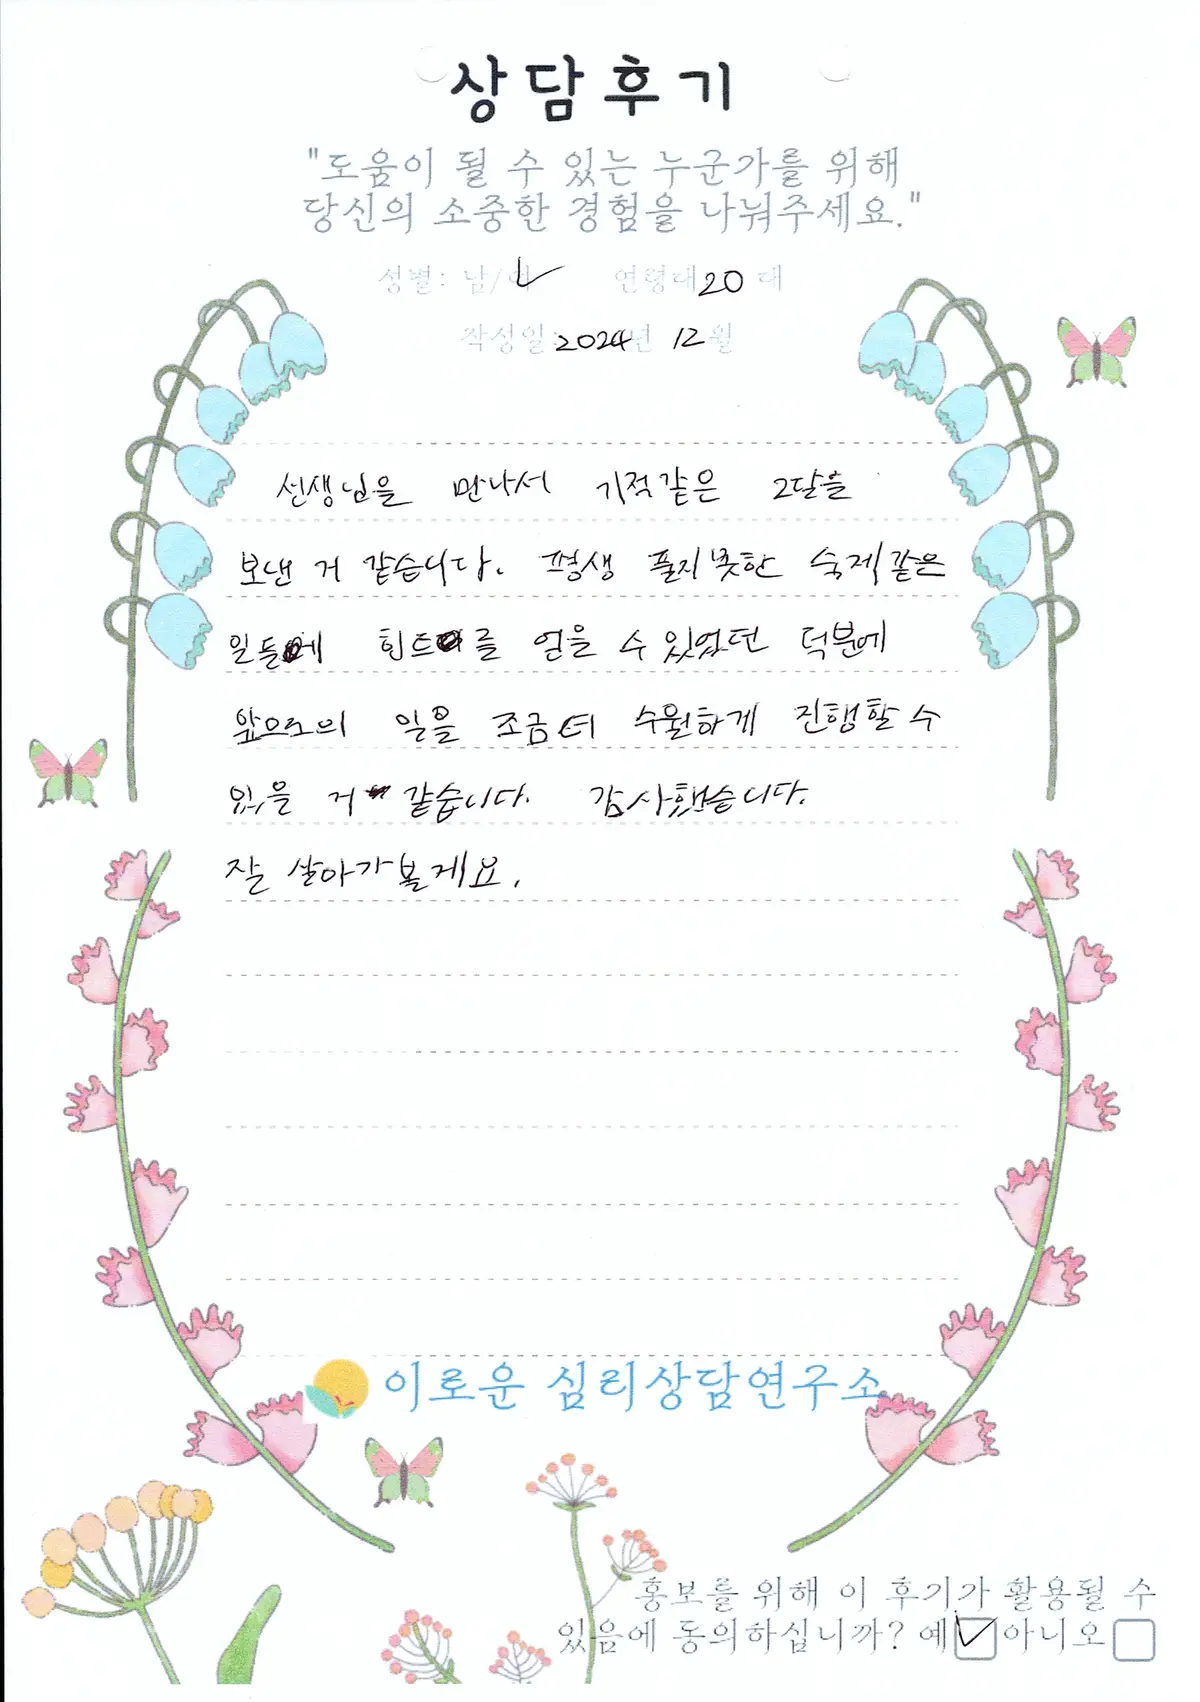 상담후기
"도움이 될 수 있는 누군가를 위해
당신의 소중한 경험을 나눠주세요."
성별: 남/여 연령대 20 대
작성일: 2024년 12월
선생님을 만나서 기적같은 2달을
보낸 거 같습니다. 평생 풀지못한 숙제같은
일들에 힌트를 얻을 수 있었던 덕분에
앞으로의 일을 조금 더 수월하게 진행할 수
있을 거 같습니다. 감사했습니다.
잘 살아가볼게요.
이로운 심리상담연구소
홍보를 위해 이 후기가 활용될 수
있음에 동의하십니까? 예 아니오